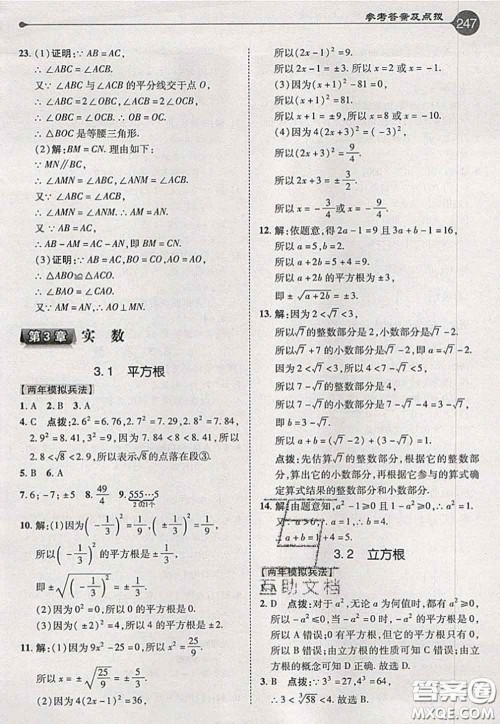 参考答案及点拨 247
23. (1)证明:∵AB=AC,
∴∠ABC=∠ACB.
又∵∠ABC与∠ACB的平分线交于点O,
∴∠ABC=2∠OBC,∠ACB=2∠OCB.
∴∠OBC=∠OCB.∴OB=OC.
∴△BOC是等腰三角形.
(2)解:BM=CN. 理由如下:
∵MN∥BC,
∴∠AMN=∠ABC,∠ANM=∠ACB.
又∵∠ABC=∠ACB,
∴∠AMN=∠ANM.∴AM=AN.
又∵AB=AC,
∴AB-AM=AC-AN.∴BM=CN.
(3)证明:∵AB=AC,BO=CO,AO=AO,
∴△ABO≌△ACO.
∴∠BAO=∠CAO.
又∵AM=AN,∴MO=NO.
第3章 实数
3.1 平方根
【两年模拟兵法】
1. A 2. B 3. A
4. C 点拨:2.6²=6.76,2.7²=7.29,2.8²=7.84,
2.9²=8.41,3²=9,∵7.84<8<8.41,∴
2.8<√8<2.9,所以表示√8的点落在段③.
5. B 6. A
7. 6;-7;±5 8. 49/4 9. 555…5 2 021个
10. 解:(1)因为(-1/3)²=1/9,(±1/3)²=1/9,
所以(-1/3)²的平方根是±1/3.
即±√(-1/3)²=±1/3.
(2)因为0²=0,所以0的平方根是0.
11. 解:(1)因为9x²=25,所以x²=25/9.
所以x=±√25/9=±5/3.
(2)因为4(2x-1)²=36,
所以(2x-1)²=9.
所以2x-1=±3.
所以2x-1=3或2x-1=-3.
所以x=2或x=-1.
所以(x+1)²=81.
所以x+1=±9,所以x=8或x=-10.
(4)因为4(2x+3)²=(-3)²,
所以(2x+3)²=9/4.
所以2x+3=±3/2.
所以x=-3/4或x=-9/4.
12. 解:依题意,得2a-1=9且3a+b-1=16,
所以a=5,b=2.
所以a+2b=5+4=9.
所以a+2b的平方根为±3.
即±√a+2b=±3.
13. 解:因为√7的整数部分是2,
所以√7的小数部分是√7-2,即a=√7-2.
因为√7的整数部分是2,
所以7-√7的整数部分是4.
所以7-√7的小数部分是7-√7-4=3-√7,
即b=3-√7.
所以a+b=√7-2+3-√7=1.
点拨:先估算√7的整数部分,根据√7的整数部
分,算出它的小数部分,再根据它参与的算式确
定算式结果的整数部分和小数部分.
14. 解:由题意知,a²-1≥0,1-a²≥0,
∴a²=1.
3.2 立方根
【两年模拟兵法】
互助文档
2. D 点拨:对于a²,无论a为何值时,都有a²≥0,
所以-a²≤0,当a=0时,-a²有平方根为0,所
以A错误;0有平方根,所以B错误;0有立方
根,所以C错误;由立方根的性质可知任何一个
有理数都有立方根. 故选D.
答案圈
MXQE.COM